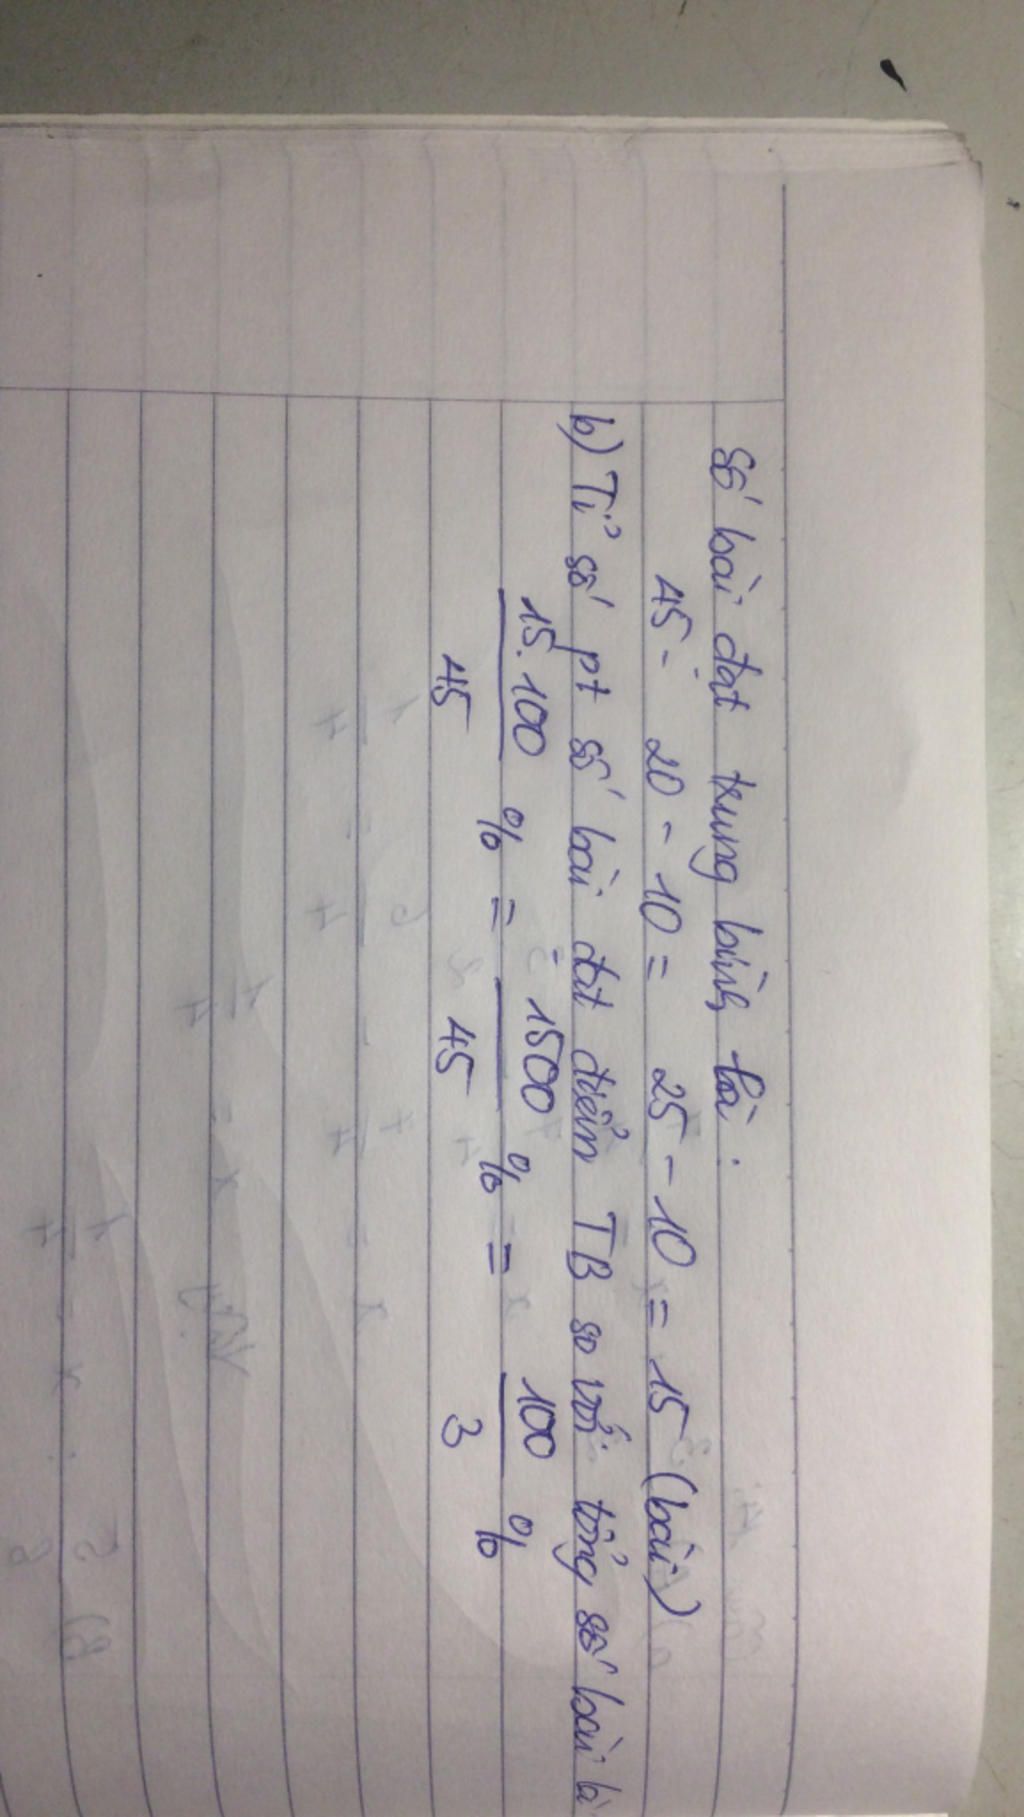 Số bài đạt trung bình là :
45 - 20 - 10 = 25 - 10 = 15 (bài)
b) Tỉ số pt số bài đạt điểm TB so với tổng số bài là
15.100 % = 1500 % = 100 %
45 45 3